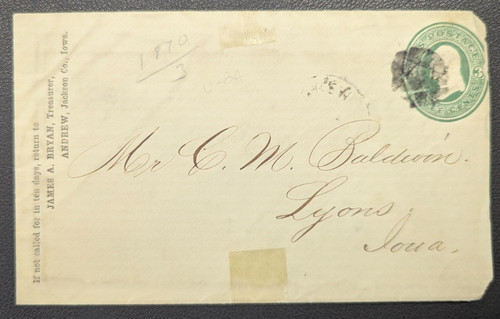 If not called for in ten days, return to
JAMES A. BRYAN, Treasurer,
ANDREW, Jackson Co., Iowa.
1870
3
POSTAGE
CENTS
Mr C. M. Baldwin.
Lyons.
Iowa.